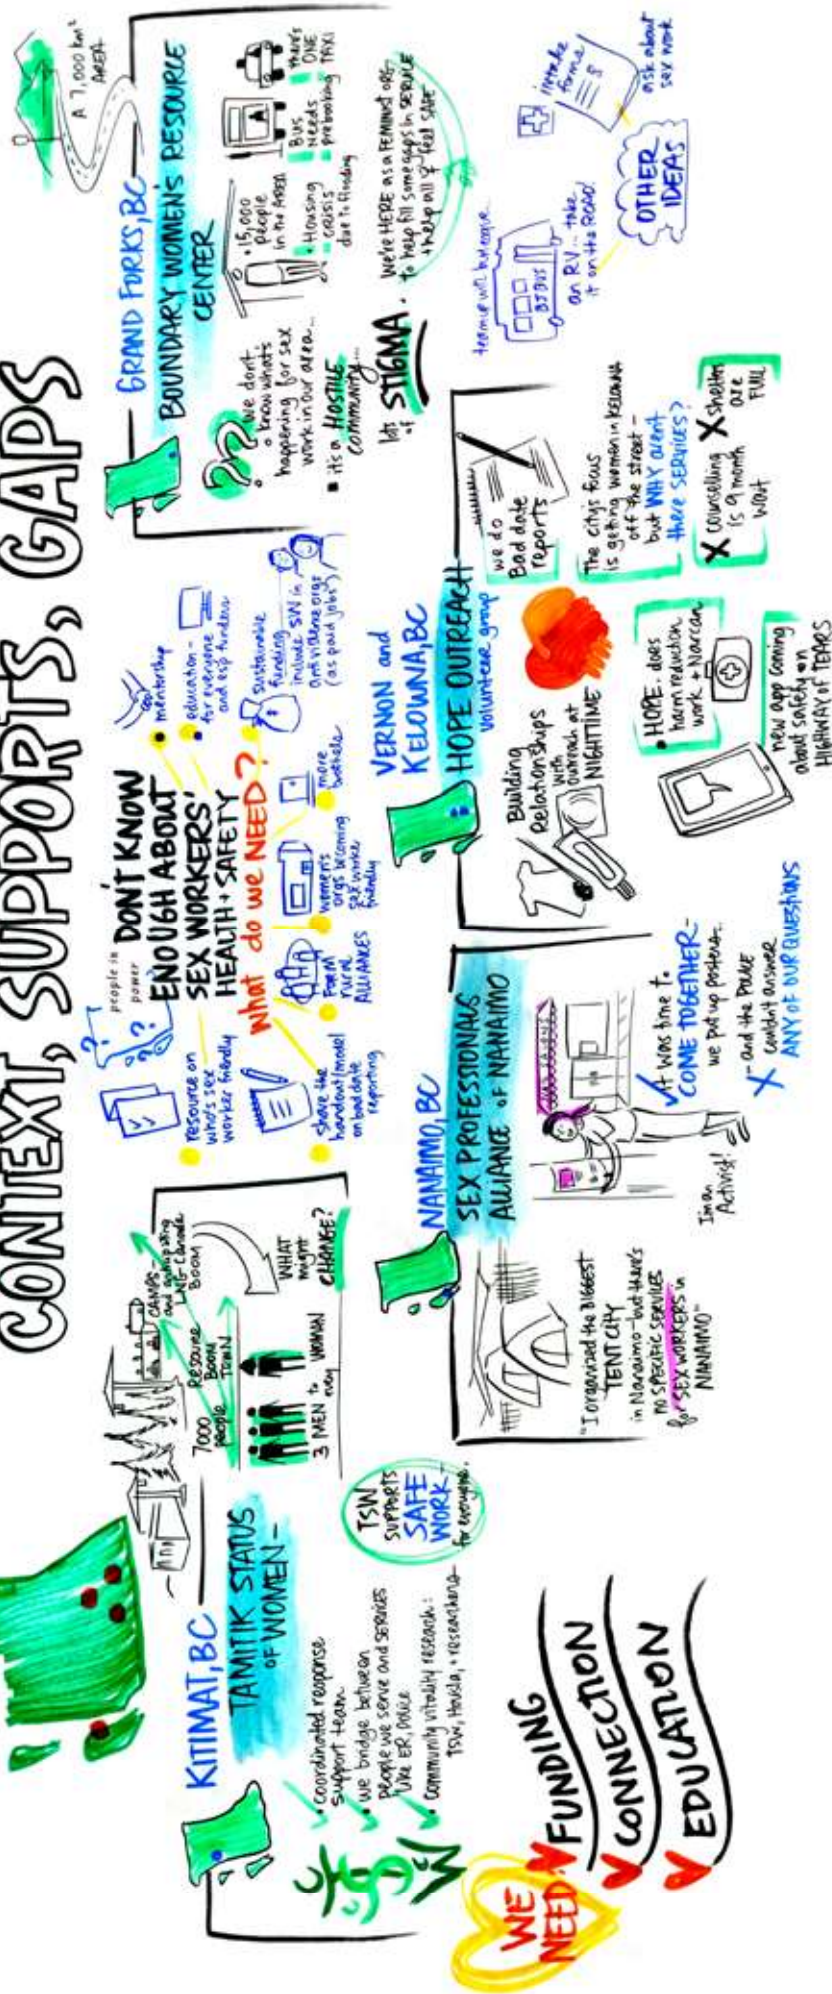 CONTEXT, SUPPORTS, GAPS
KITIMAT, BC
TAMITIK STATUS
OF WOMEN-
coordinated response
support team
we bridge between
people we serve and services
like ER, police
Community vitality research:
TSW, Haisla, + researchers
TSW
SUPPORTS
SAFE
WORK-
for everyone.
7000
people
RESOURCE
BOOM
TOWN
CAMPS-
and anticipating
LNG Canada
BOOM
3 MEN to every WOMAN
WHAT
might
CHANGE?
WE
NEED:
FUNDING
CONNECTION
EDUCATION
people in
power
DON'T KNOW
ENOUGH ABOUT
SEX WORKERS'
HEALTH + SAFETY
What do we NEED?
resource on
who's sex
worker friendly
share the
handout/model
on bad date
reporting
FORM
rural
ALLIANCES
women's
orgs becoming
sex worker
friendly
more
brothels
mentorship
education-
for everyone
and esp funders
sustainable
funding
include SW in
anti violence orgs
(as paid jobs)
NANAIMO, BC
SEX PROFESSIONALS
ALLIANCE OF NANAIMO
"I organized the BIGGEST
TENT CITY
in Nanaimo-but there's
no SPECIFIC SERVICES
for SEX WORKERS in
NANAIMO"
I'm an
Activist!
it was time to
COME TOGETHER-
we put up posters..
-and the POLICE
couldn't answer
ANY OF OUR QUESTIONS
VERNON and
KELOWNA, BC
HOPE OUTREACH
volunteer group
Building
Relationships
with
outreach at
NIGHTTIME
we do
Bad date
reports
HOPE. does
harm reduction
work + Narcan
new app coming
about safety on
HIGHWAY of TEARS
The city's focus
is getting women in KELOWNA
off the street-
but WHY arent
there SERVICES?
X counselling
is 9 month
wait
X shelters
are
FULL
GRAND FORKS, BC
BOUNDARY WOMEN'S RESOURCE
CENTER
A 7,000 km²
AREA
??
we don't
know what's
happening for sex
work in our area...
it's a HOSTILE
community...
lots
of STIGMA.
15,000
people
in the AREA
Housing
crisis
due to flooding
BUS
Needs
prebooking
there's
ONE
TAXI
We're HERE as a FEMINIST ORG.
to help fill some gaps in SERVICE
+ help all of feel SAFE
OTHER
IDEAS
an RV... take
it on the ROAD!
intake
forms
ask about
sex work